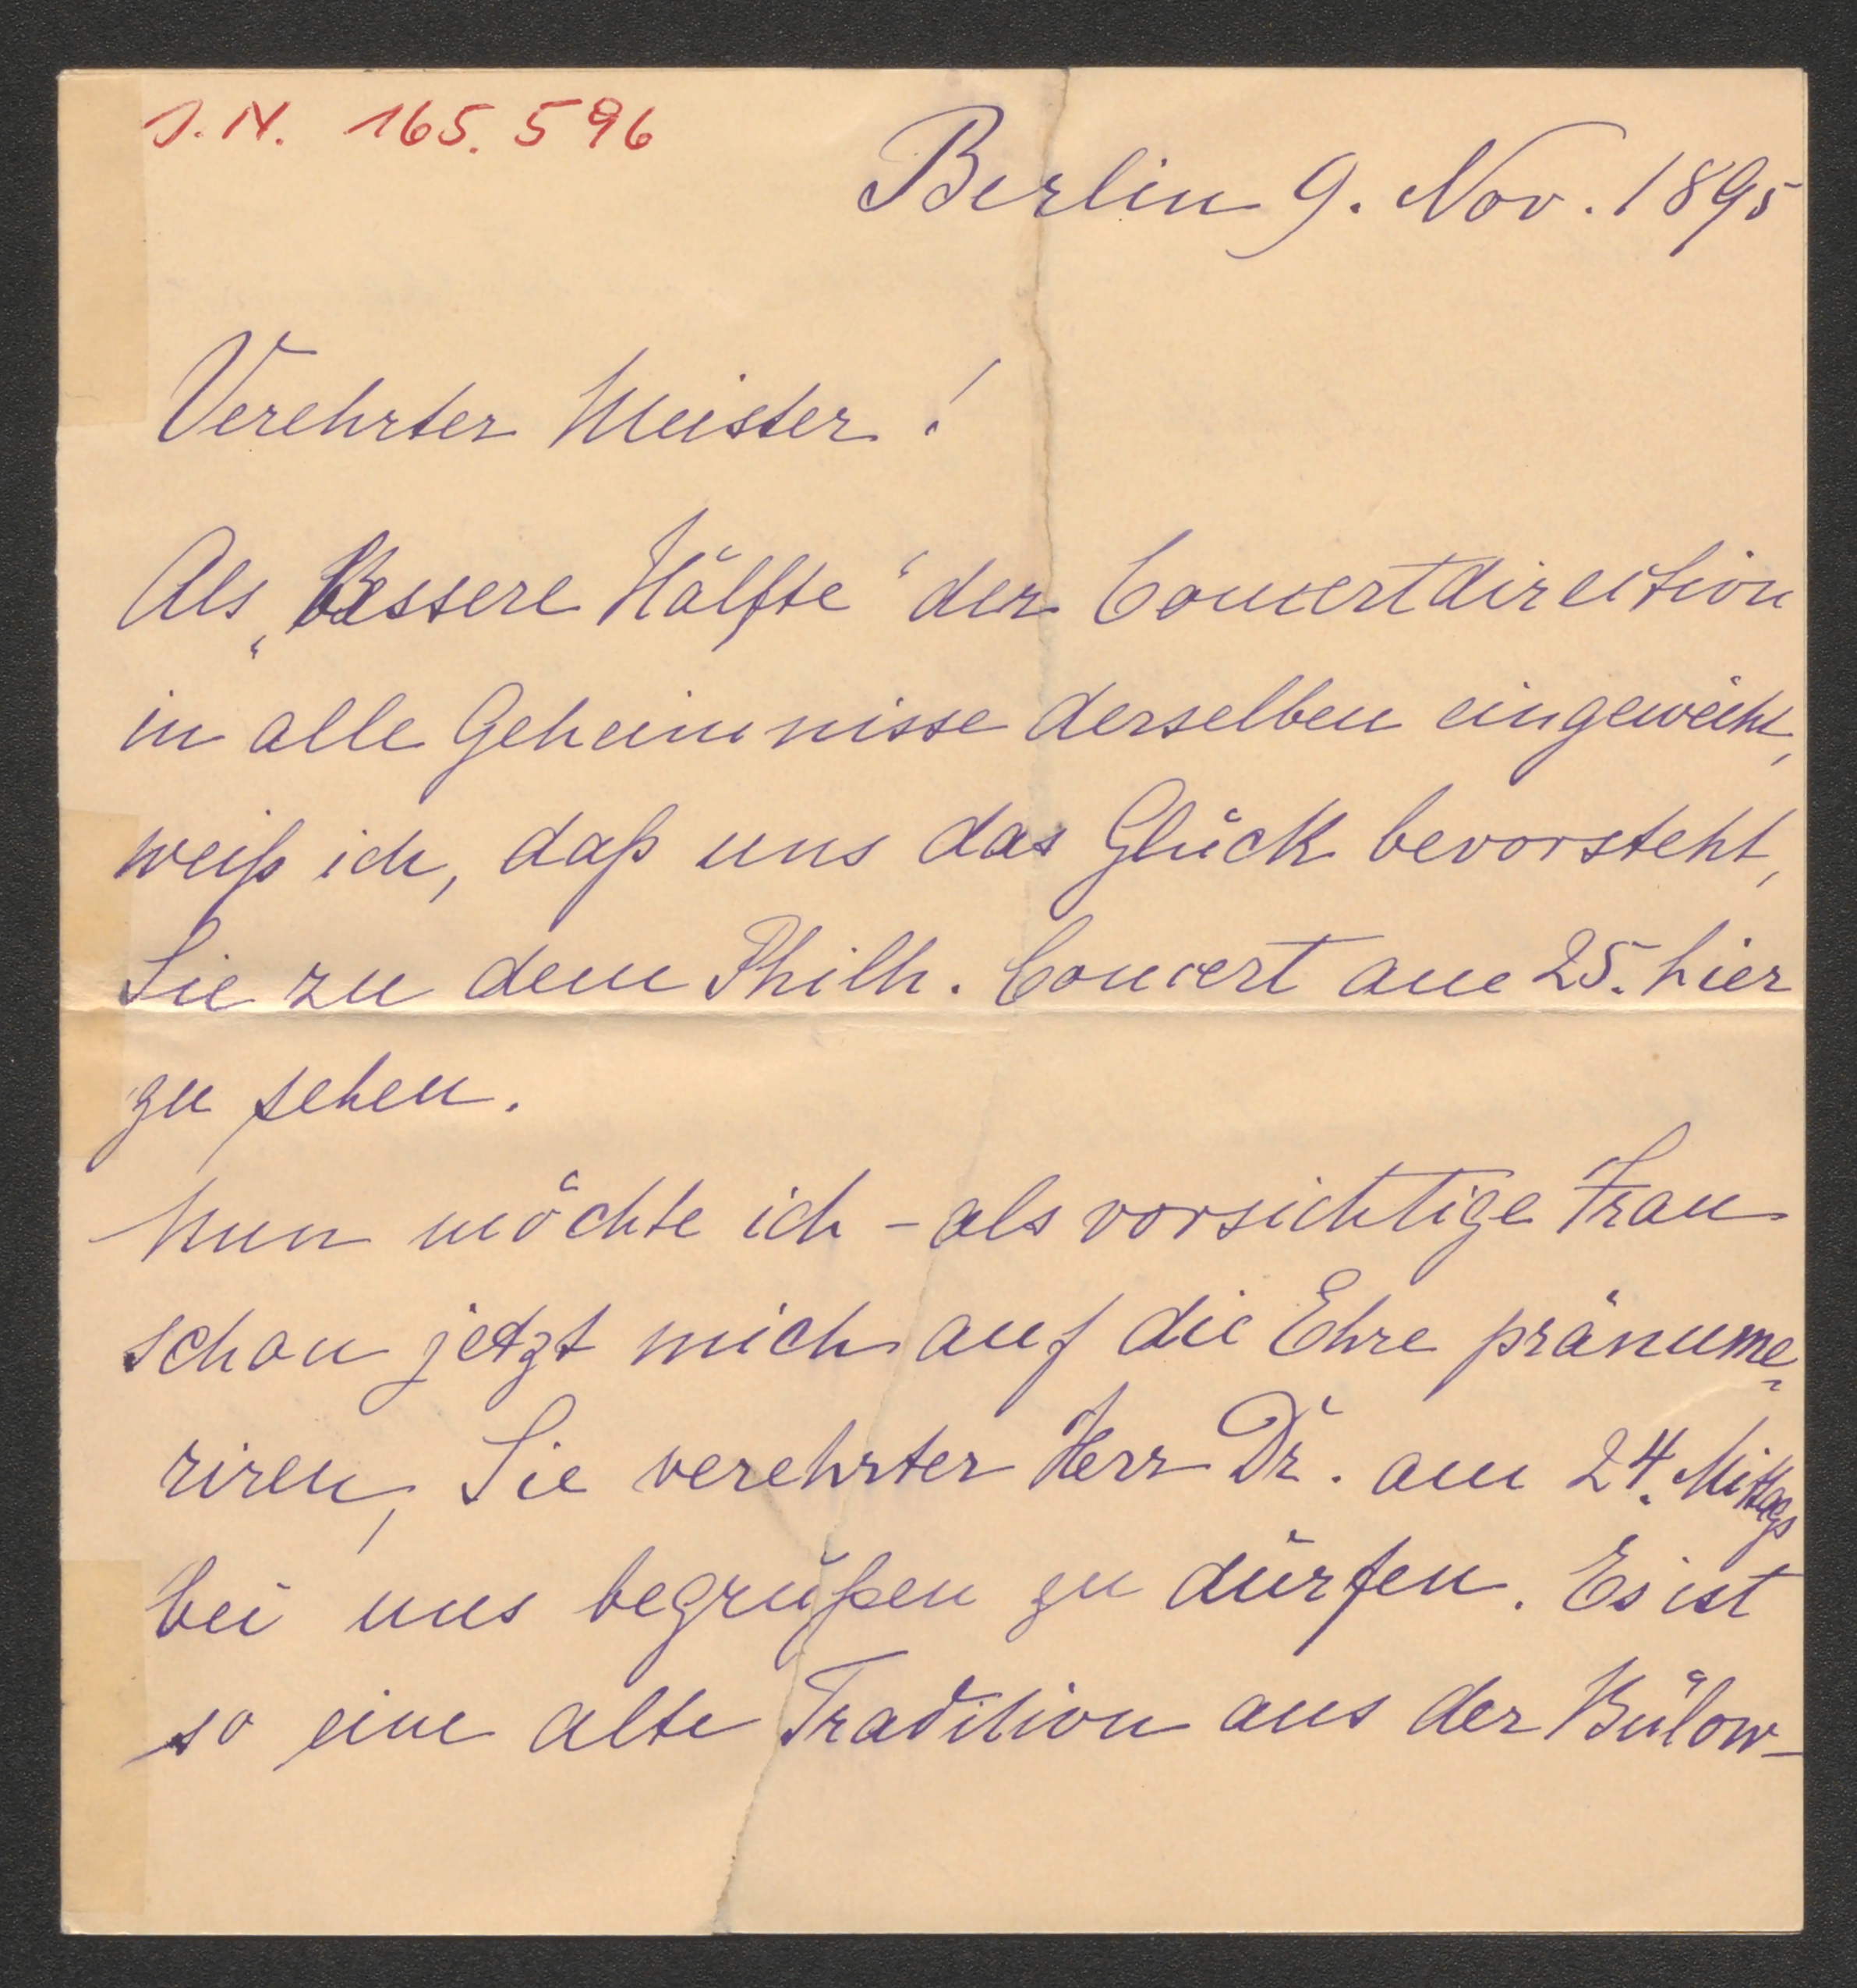 J.N. 165.596
Berlin 9. Nov. 1895
Verehrter Meister!
Als „Bessere Hälfte“ der Concertdirection
in alle Geheimnisse derselben eingeweiht,
weiß ich, daß uns das Glück bevorsteht,
Sie zu dem Philh. Concert am 25. hier
zu sehen.
Nun möchte ich – als vorsichtige Frau
schon jetzt mich auf die Ehre pränume=
riren, Sie verehrter Herr Dr. am 24. Mittags
bei uns begrüßen zu dürfen. Es ist
so eine alte Tradition aus der Bülow-